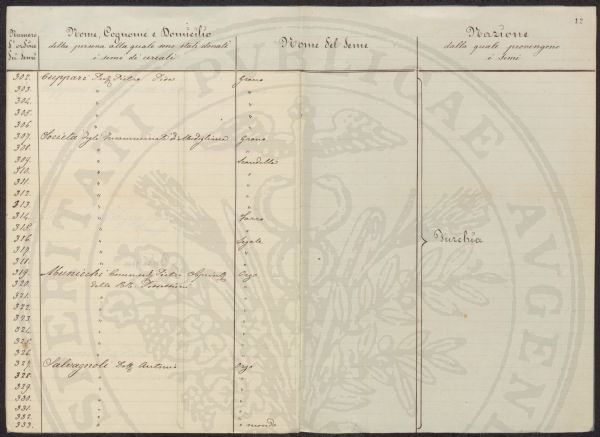 12
Numero d'ordine dei semi
Nome, Cognome e Domicilio della persona alla quale sono stati donati i semi di cereali
Nome del seme
Nazione dalla quale provengono i semi
302. Cuppari Prof. Pietro Pisa Grano
303. " "
304. " "
305. " "
306. " "
307. Società degli Incamminati di Modigliana Grano
308. " "
309. " Scandella
310. " "
311. " "
312. " "
313. " "
314. " Farro
315. " "
316. " Segale
317. " "
318. " "
Turchia
319. Municchi Pietro Orzo
320. delle
321. " "
322. " "
323. " "
324. " "
325. " "
326. " "
327. Salvagnoli Dott. Antonio Orzo
328. " "
329. " "
330. " "
331. " "
332. " "
333. " " mondo
PUBLICAE